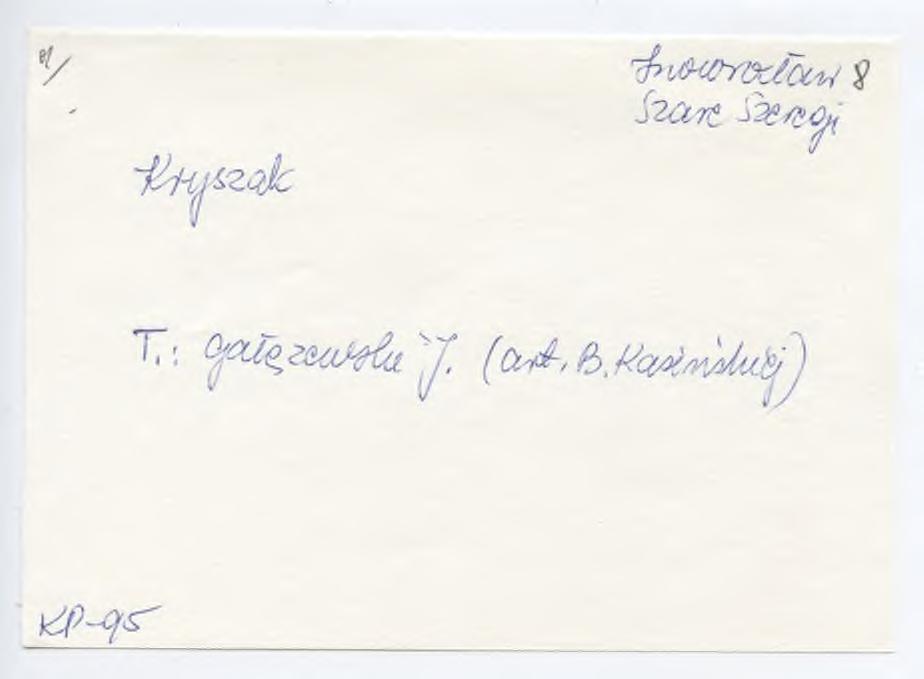 Inowrocław 8
Szare Szeregi
Kryszak
T.: Gałęzewski J. (art. B. Kasińskiej)
KP-95